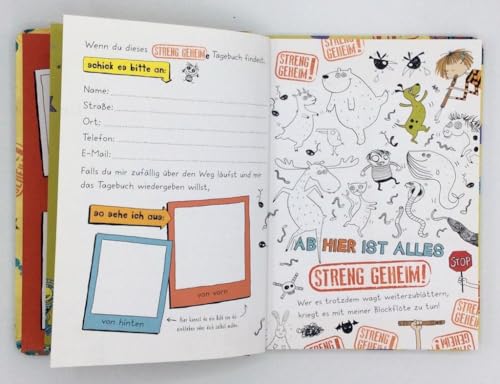 Wenn du dieses STRENG GEHEIMe Tagebuch findest,
schick es bitte an:
Name:
Straße:
Ort:
Telefon:
E-Mail:
Falls du mir zufällig über den Weg läufst und mir
das Tagebuch wiedergeben willst,
so sehe ich aus:
von vorn
von hinten
Hier kannst du ein Bild von dir
einkleben oder dich selbst malen.
STRENG GEHEIM!
STRENG GEHEIM!
STRENG GEHEIM!
AB HIER IST ALLES
STRENG GEHEIM!
STOP
Wer es trotzdem wagt weiterzublättern,
kriegt es mit meiner Blockflöte zu tun!
STRENG GEHEIM!